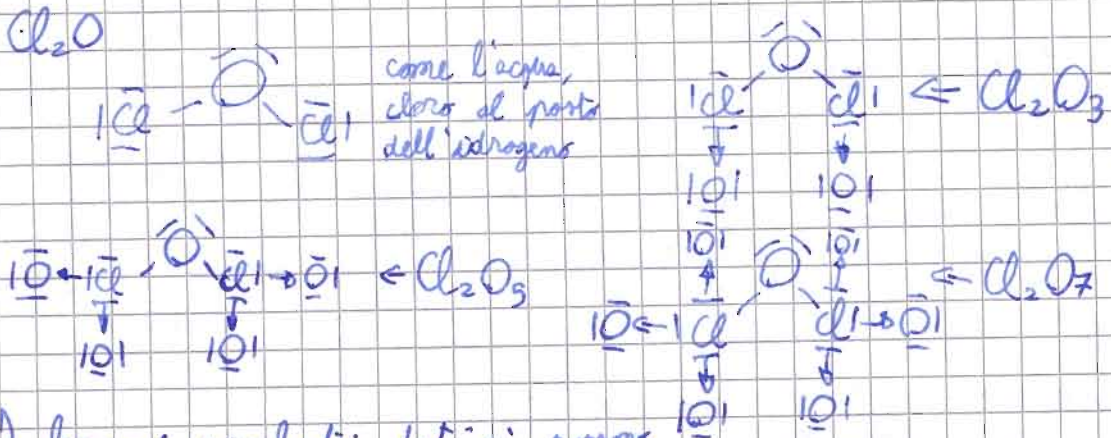 Cl₂O
|Cl - O - Cl|
come l'acqua,
cloro al posto
dell'idrogeno
|Cl O Cl| ⇐ Cl₂O₃
|O| |O|
|O ← |Cl O Cl| → O| ← Cl₂O₅
|O| |O|
|O| |O|
|O ← |Cl O Cl| → O| ⇐ Cl₂O₇
|O| |O|